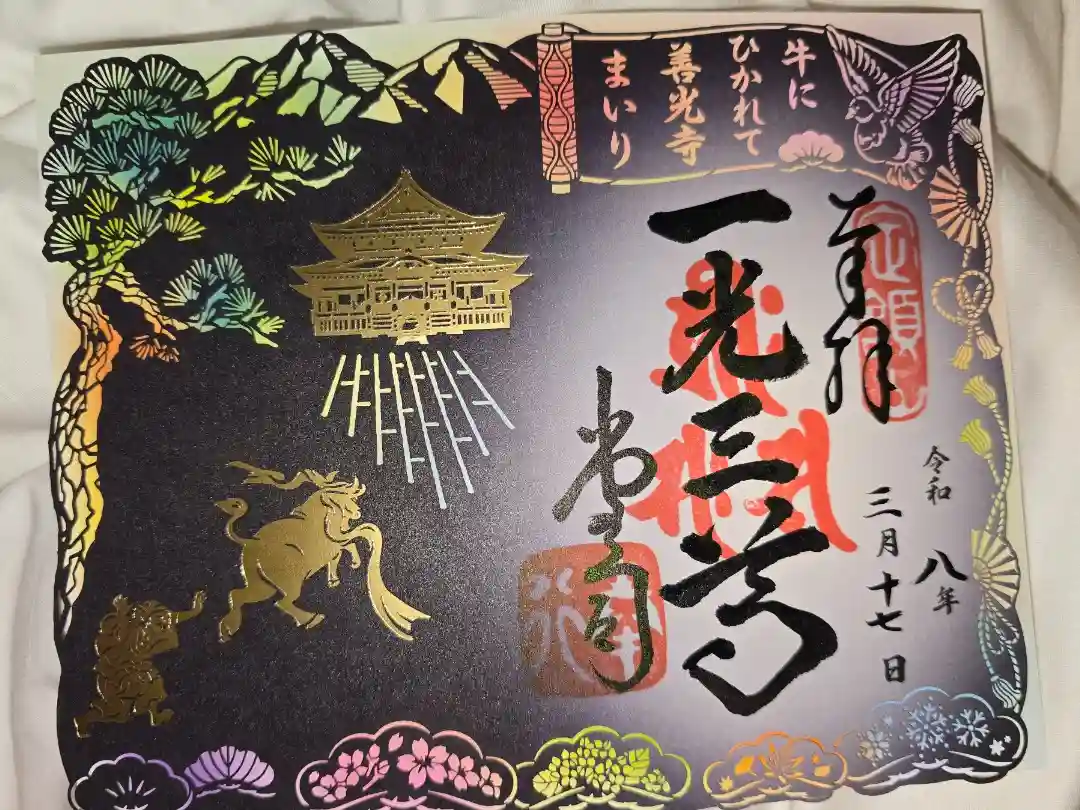 牛に
ひかれて
善光寺
まいり
奉拝
令和 八年
三月十七日
一光三尊
堂司